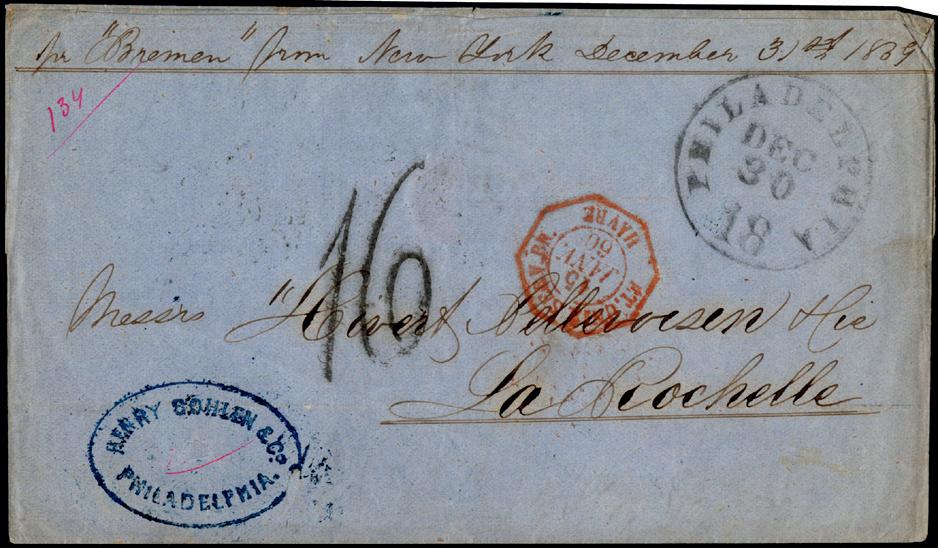 pr "Bremen" from New York December 31st 1859
134
PHILADELPHIA
DEC
30
18
16
HAVRE
60
JANV.
ET. UN. SERV. BR.
Messrs "Hivert & Cie
La Rochelle
HENRY BOHLEN & Co.
PHILADELPHIA.